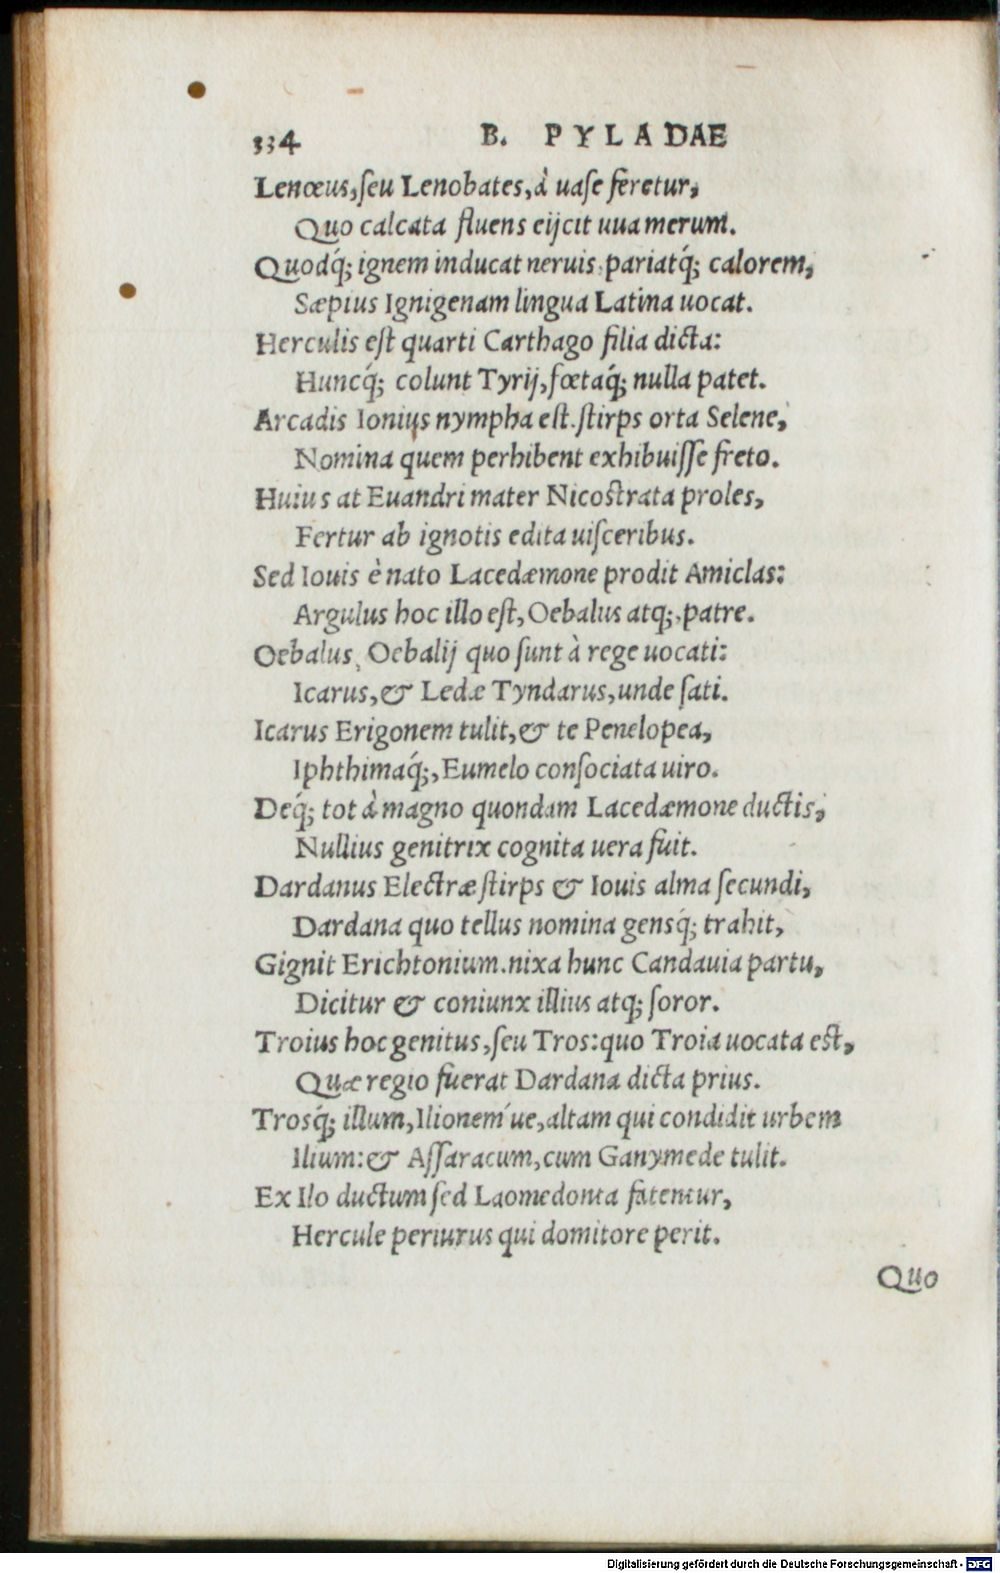 334 B. PYLADAE
Lenœus, ſeu Lenobates, à uaſe feretur,
Quo calcata fluens eijcit uua merum.
Quodq́; ignem inducat neruis, pariatq́; calorem,
Sæpius Ignigenam lingua Latina uocat.
Herculis eſt quarti Carthago filia dicta:
Huncq́; colunt Tyrij, fœtaq́; nulla patet.
Arcadis Ionius nympha eſt. ſtirps orta Selene,
Nomina quem perhibent exhibuiſſe freto.
Huius at Euandri mater Nicoſtrata proles,
Fertur ab ignotis edita uiſceribus.
Sed Iouis è nato Lacedæmone prodit Amiclas:
Argulus hoc illo eſt, Oebalus atq;, patre.
Oebalus, Oebalij quo ſunt à rege uocati:
Icarus, & Ledæ Tyndarus, unde ſati.
Icarus Erigonem tulit, & te Penelopea,
Iphthimaq́;, Eumelo conſociata uiro.
Deq́; tot à magno quondam Lacedæmone ductis,
Nullius genitrix cognita uera fuit.
Dardanus Electræ ſtirps & Iouis alma ſecundi,
Dardana quo tellus nomina gensq́; trahit,
Gignit Erichtonium. nixa hunc Candauia partu,
Dicitur & coniunx illius atq; ſoror.
Troius hoc genitus, ſeu Tros: quo Troia uocata eſt,
Quæ regio fuerat Dardana dicta prius.
Trosq́; illum, Ilionem'ue, altam qui condidit urbem
Ilium: & Aſſaracum, cum Ganymede tulit.
Ex Ilo ductum ſed Laomedonta fatentur,
Hercule periurus qui domitore perit.
Quo
Digitalisierung gefördert durch die Deutsche Forschungsgemeinschaft - DFG